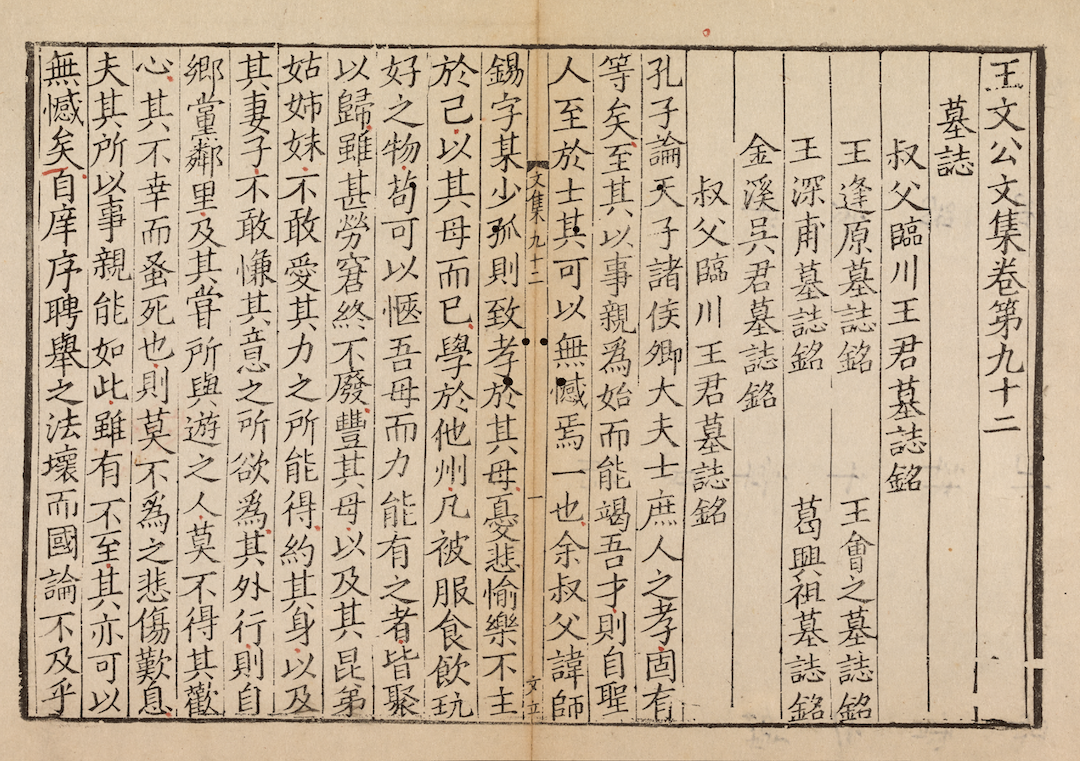 王文公文集卷第九十二
墓誌
叔父臨川王君墓誌銘
王逢原墓誌銘 王會之墓誌銘
王深甫墓誌銘 葛興祖墓誌銘
金溪吳君墓誌銘
叔父臨川王君墓誌銘
孔子論天子諸侯卿大夫士庶人之孝固有
等矣至其以事親爲始而能竭吾才則自聖
人至於士其可以無憾焉一也余叔父諱師
文集九十二 一 文立
錫字某少孤則致孝於其母憂悲愉樂不主
於己以其母而已學於他州凡被服食飲玩
好之物苟可以愜吾母而力能有之者皆聚
以歸雖甚勞窘終不廢豐其母以及其昆弟
姑姉妹不敢愛其力之所能得約其身以及
其妻子不敢慊其意之所欲爲其外行則自
鄉黨鄰里及其甞所與遊之人莫不得其歡
心其不幸而蚤死也則莫不爲之悲傷歎息
夫其所以事親能如此雖有不至其亦可以
無憾矣自庠序聘舉之法壞而國論不及乎